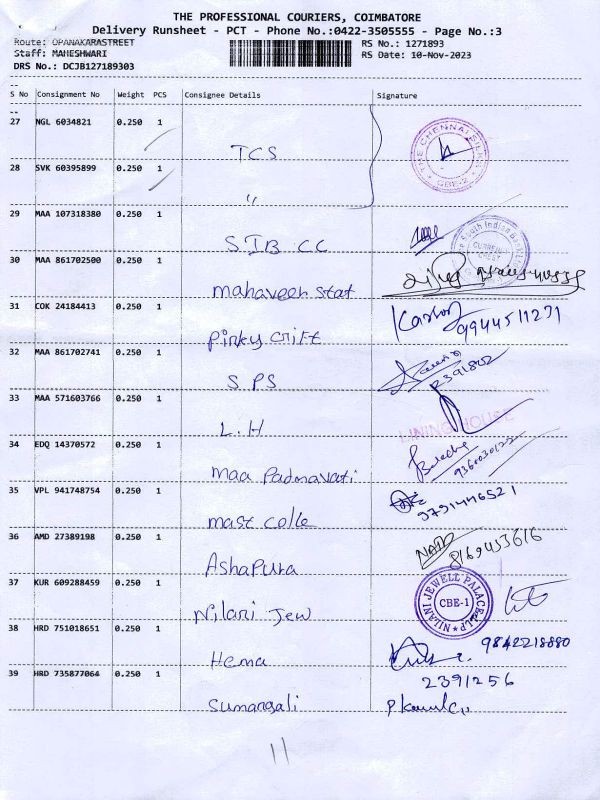 THE PROFESSIONAL COURIERS, COIMBATORE
Delivery Runsheet - PCT - Phone No.:0422-3505555 - Page No.:3
Route: OPANAKARASTREET RS No.: 1271893
Staff: MAHESHWARI RS Date: 10-Nov-2023
DRS No.: DCJB127189303
S No Consignment No Weight PCS Consignee Details Signature
27 NGL 6034821 0.250 1
TCS
THE CHENNAI SILKS CBE-2
28 SVK 60395899 0.250 1
"
29 MAA 107318380 0.250 1
SIB CC
South Indian Bank Ltd
30 MAA 861702500 0.250 1
mahaveer stat
31 COK 24184413 0.250 1
pinky crift
9944511271
32 MAA 861702741 0.250 1
SPS
2391802
33 MAA 571603766 0.250 1
L.H
LINING HOUSE
34 EDQ 14370572 0.250 1
maa Padmavati
35 VPL 941748754 0.250 1
mast colle
9791446521
36 AMD 27389198 0.250 1
AshaPura
8169453616
37 KUR 609288459 0.250 1
Nilani Jew
NILANI JEWELL PALACE LLP CBE-1
38 HRD 751018651 0.250 1
Hema
9842218880
39 HRD 735877064 0.250 1
2391256
Sumangali
11